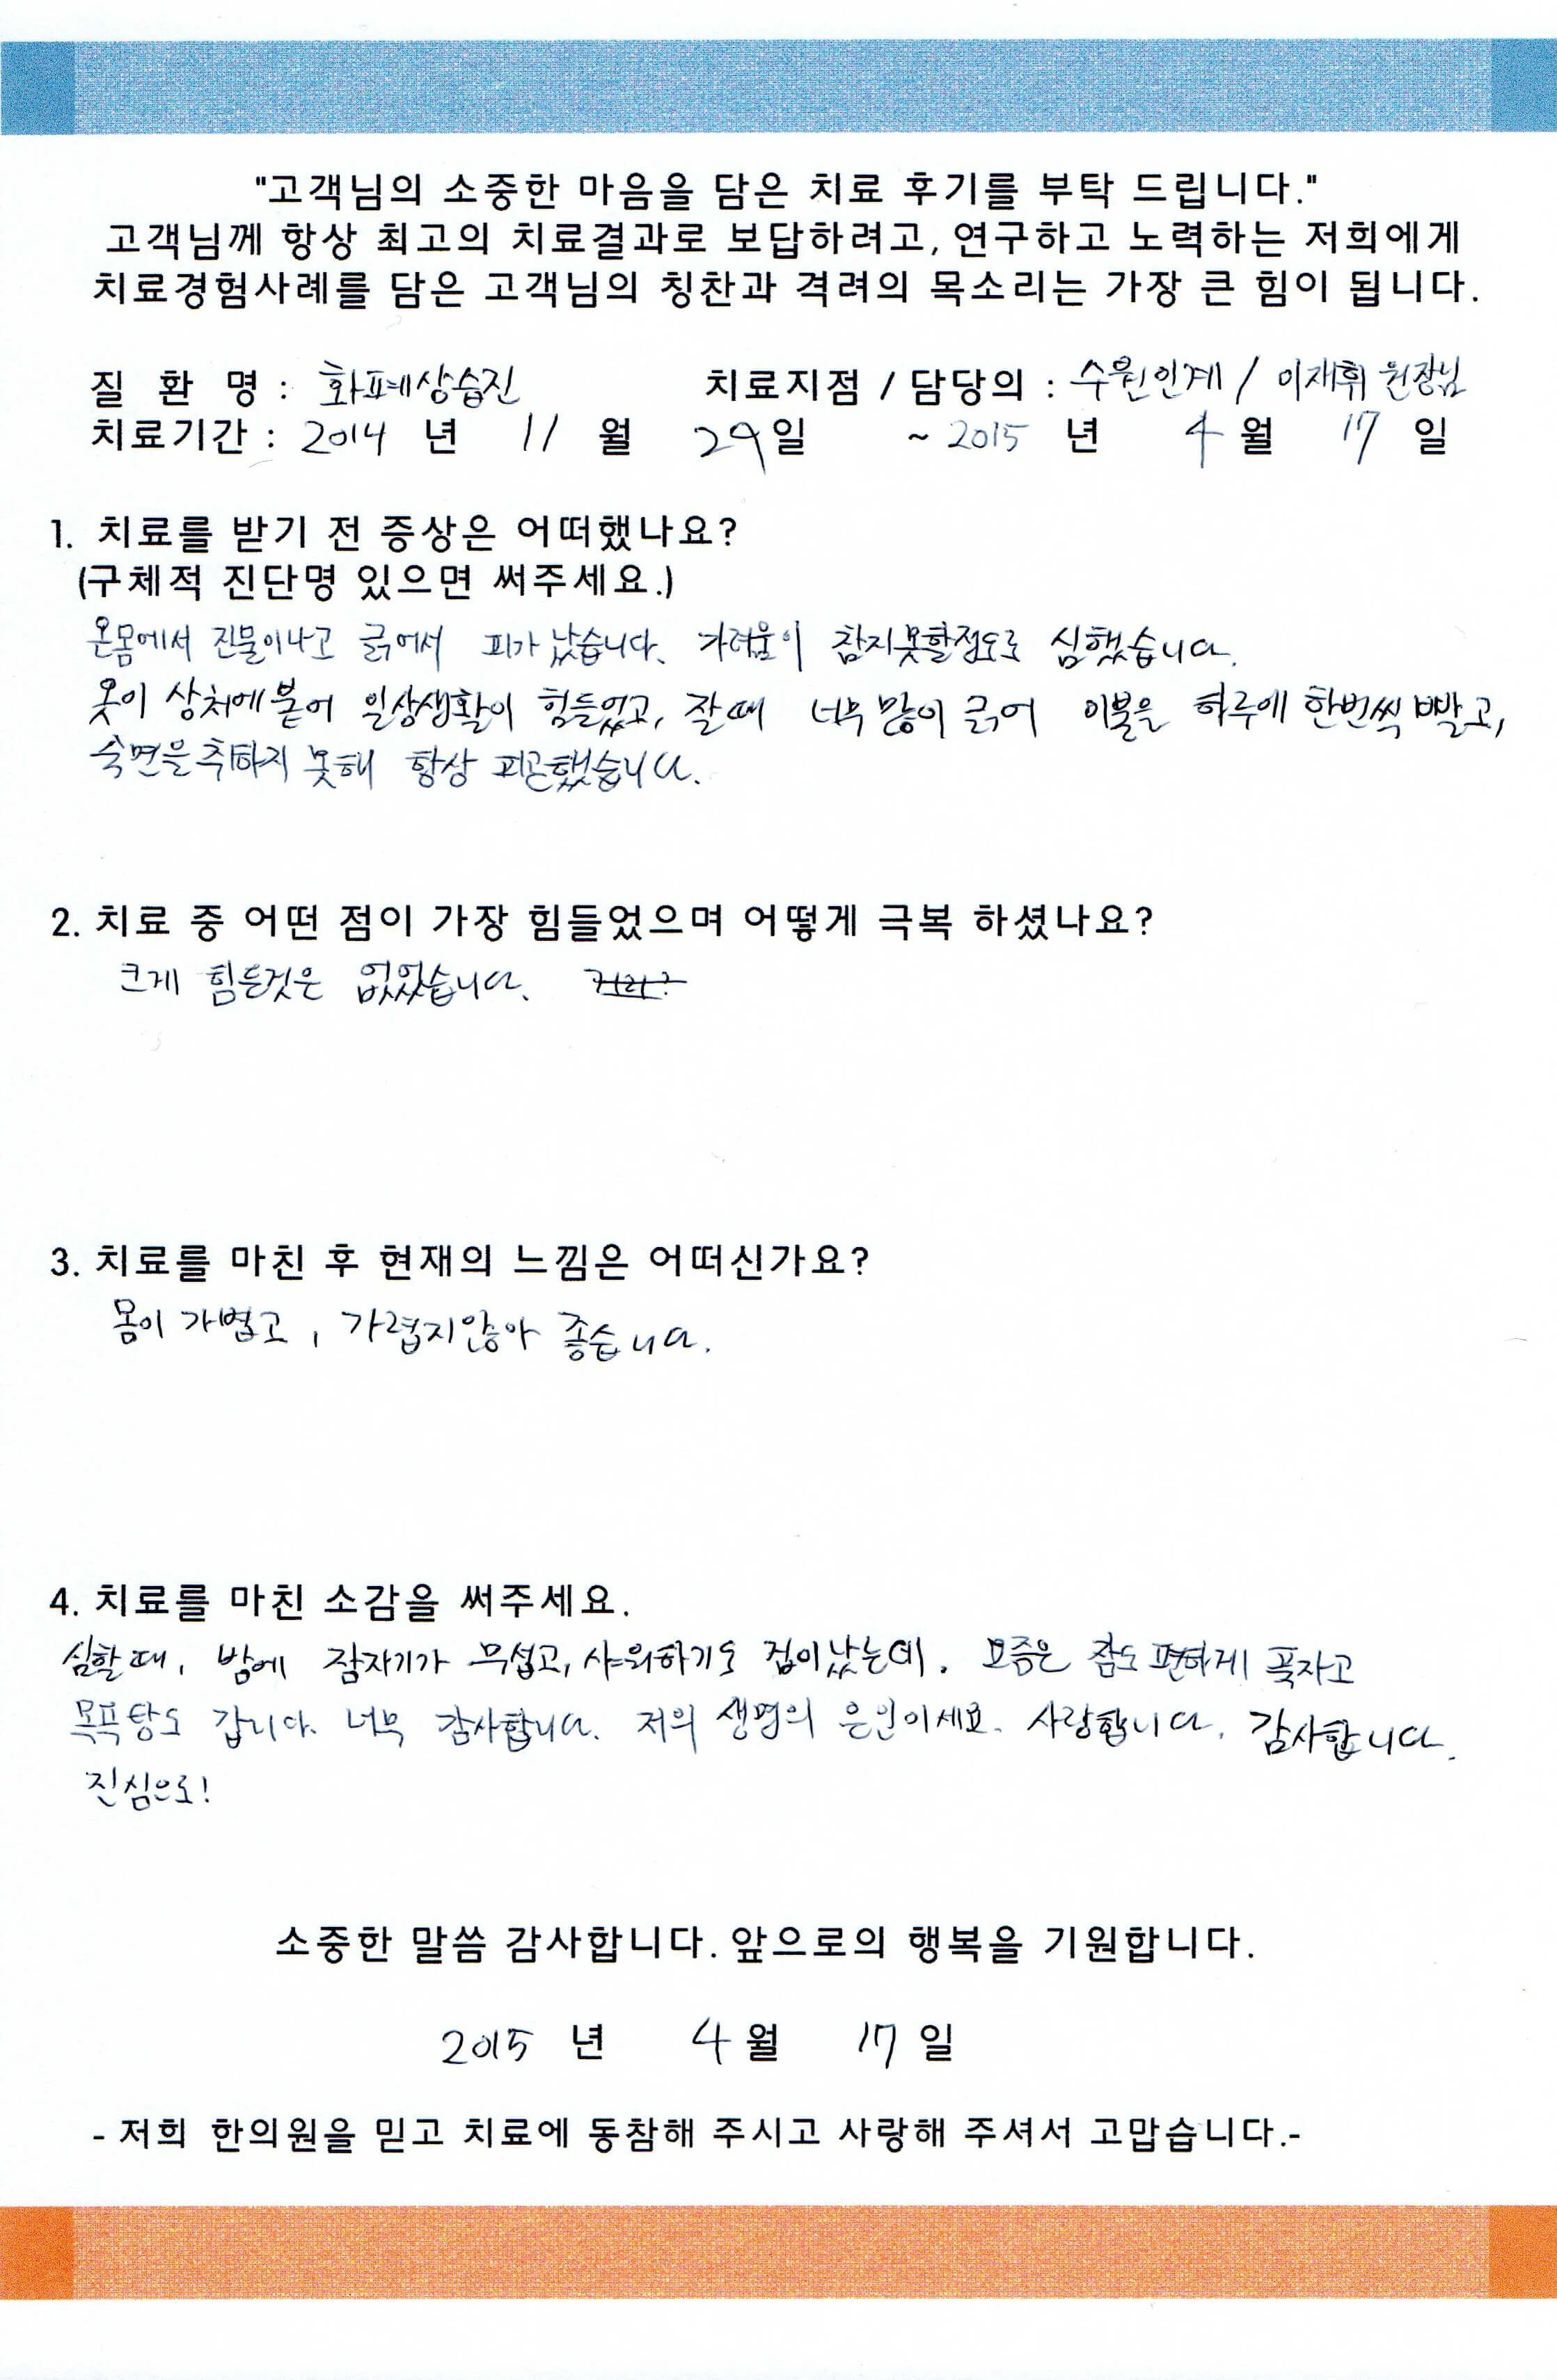 "고객님의 소중한 마음을 담은 치료 후기를 부탁 드립니다."
고객님께 항상 최고의 치료결과로 보답하려고, 연구하고 노력하는 저희에게
치료경험사례를 담은 고객님의 칭찬과 격려의 목소리는 가장 큰 힘이 됩니다.
질 환 명 : 화폐상습진 치료지점 / 담당의 : 수원인계 / 이재휘 원장님
치료기간 : 2014 년 11 월 29일 ~ 2015 년 4 월 17 일
1. 치료를 받기 전 증상은 어떠했나요?
(구체적 진단명 있으면 써주세요.)
온몸에서 진물이나고 긁어서 피가 났습니다. 가려움이 참지못할정도로 심했습니다.
옷이 상처에 붙어 일상생활이 힘들었고, 잘때 너무 많이 긁어 이불을 하루에 한번씩 빨고,
숙면을 취하지 못해 항상 피곤했습니다.
2. 치료 중 어떤 점이 가장 힘들었으며 어떻게 극복 하셨나요?
크게 힘든것은 없었습니다.
3. 치료를 마친 후 현재의 느낌은 어떠신가요?
몸이 가볍고, 가렵지않아 좋습니다.
4. 치료를 마친 소감을 써주세요.
심할때, 밤에 잠자기가 무섭고, 샤워하기도 겁이났는데. 요즘은 잠도 편하게 푹자고
목욕탕도 갑니다. 너무 감사합니다. 저의 생명의 은인이세요. 사랑합니다. 감사합니다.
진심으로!
소중한 말씀 감사합니다. 앞으로의 행복을 기원합니다.
2015 년 4 월 17 일
- 저희 한의원을 믿고 치료에 동참해 주시고 사랑해 주셔서 고맙습니다.-